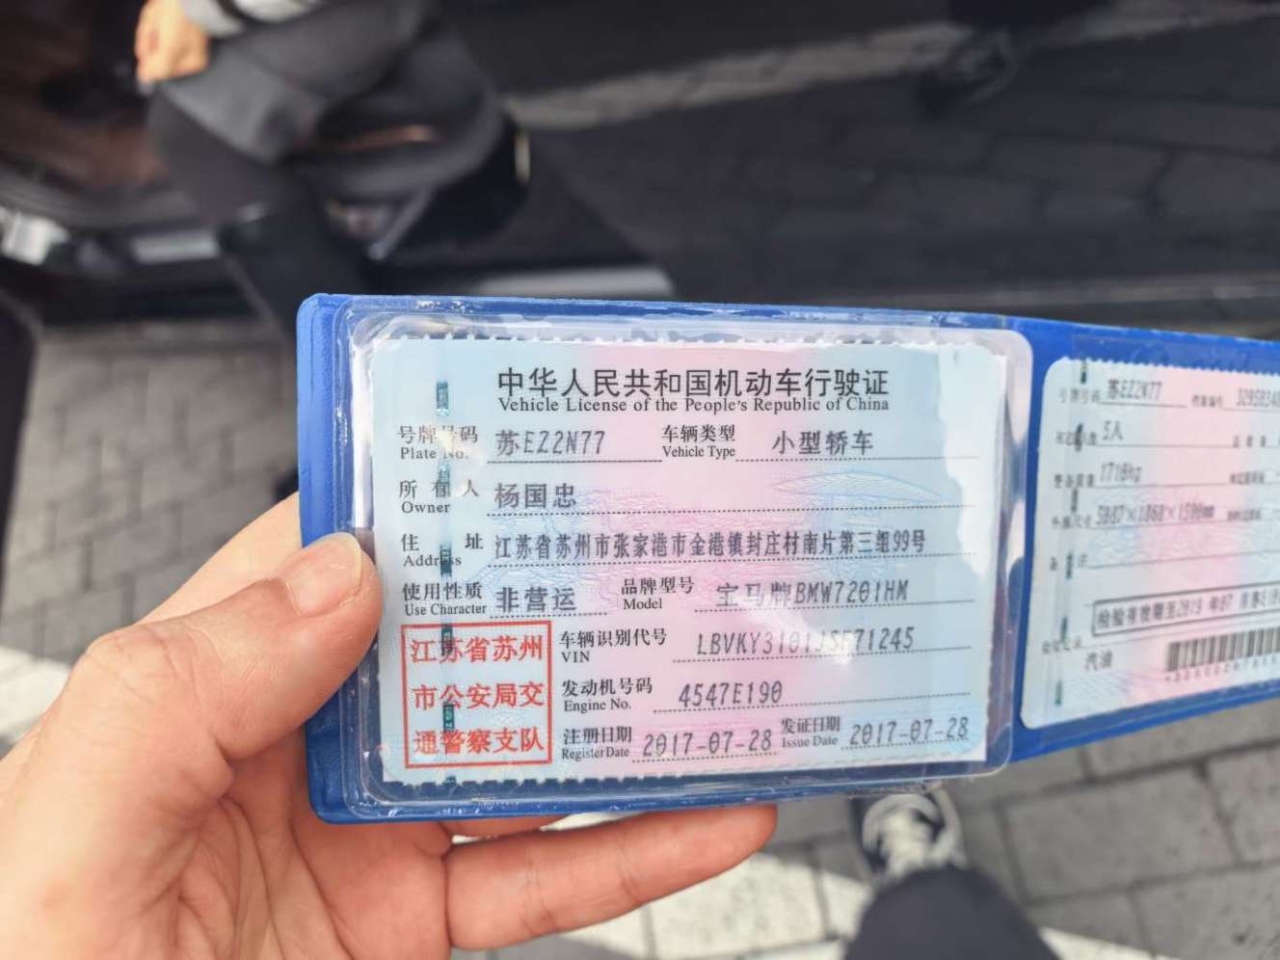 中华人民共和国机动车行驶证
Vehicle License of the People's Republic of China
号牌号码 苏EZ2N77 车辆类型 小型轿车
Plate No. Vehicle Type
所有人 杨国忠
Owner
住址 江苏省苏州市张家港市金港镇封庄村南片第三组99号
Address
使用性质 非营运 品牌型号 宝马牌BMW7201HM
Use Character Model
江苏省苏州
市公安局交
通警察支队
车辆识别代号 LBVKY3101JSF71245
VIN
发动机号码 4547E190
Engine No.
注册日期 2017-07-28 发证日期 2017-07-28
Register Date Issue Date
号牌号码 苏EZ2N77
5人
1710kg
5087×1868×1500mm
汽油